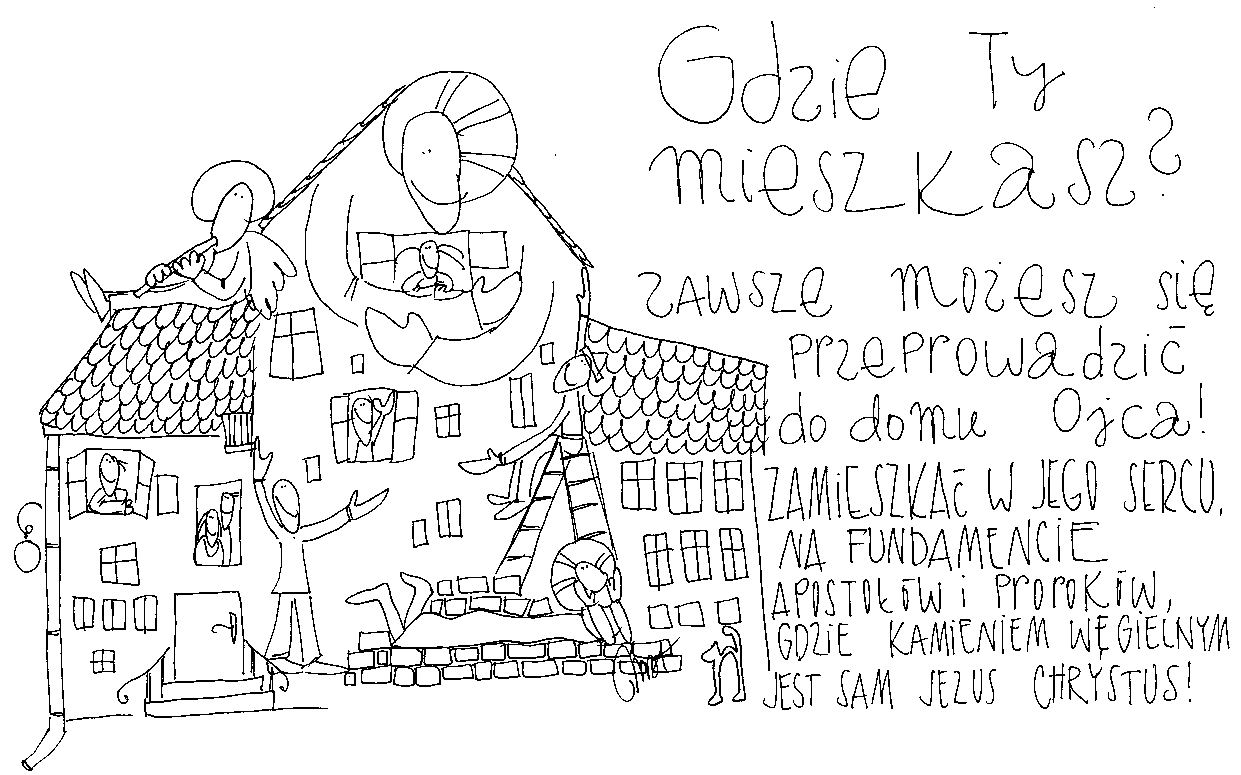 Gdzie Ty
mieszkasz?
ZAWSZE możesz się
przeprowadzić
do domu Ojca!
ZAMIESZKAĆ W JEGO SERCU,
NA FUNDAMENCIE
APOSTOŁÓW i PROROKÓW,
GDZIE KAMIENIEM WĘGIELNYM
JEST SAM JEZUS CHRYSTUS!